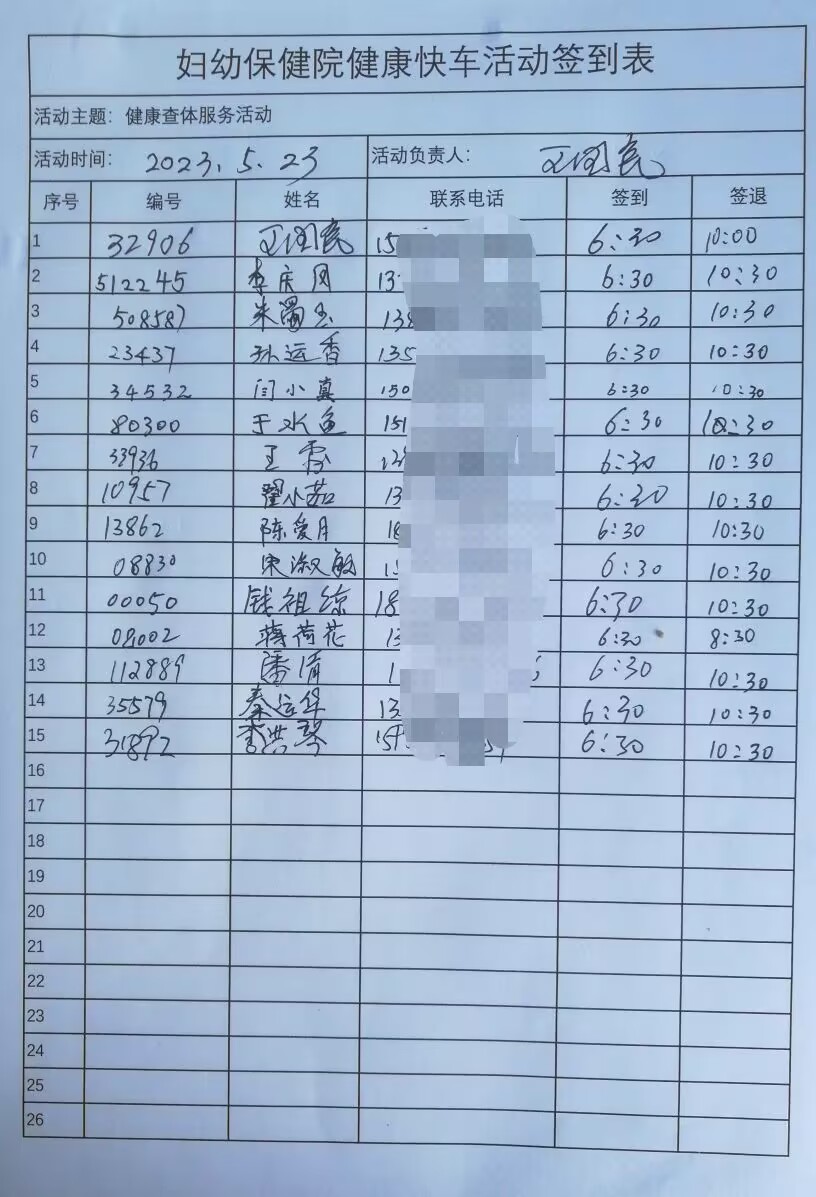 妇幼保健院健康快车活动签到表
活动主题：健康查体服务活动
活动时间： 2023.5.23 活动负责人： 王国亮
序号 编号 姓名 联系电话 签到 签退
1 32906 王国亮 15 6:30 10:00
2 512245 李庆国 13 6:30 10:30
3 508587 朱 玉 138 6:30 10:30
4 23437 孙运香 135 6:30 10:30
5 34532 闫小真 150 6:30 10:30
6 80300 于水鱼 151 6:30 10:30
7 33936 王霞 6:30 10:30
8 10957 翟小茹 13 6:30 10:30
9 13862 陈爱月 18 6:30 10:30
10 08830 宋淑敏 6:30 10:30
11 00050 钱祖综 18 6:30 10:30
12 08002 蒋荷花 13 6:30 8:30
13 112889 潘倩 1 6:30 10:30
14 35579 秦运华 13 6:30 10:30
15 31892 李洪琴 15 6:30 10:30
16
17
18
19
20
21
22
23
24
25
26